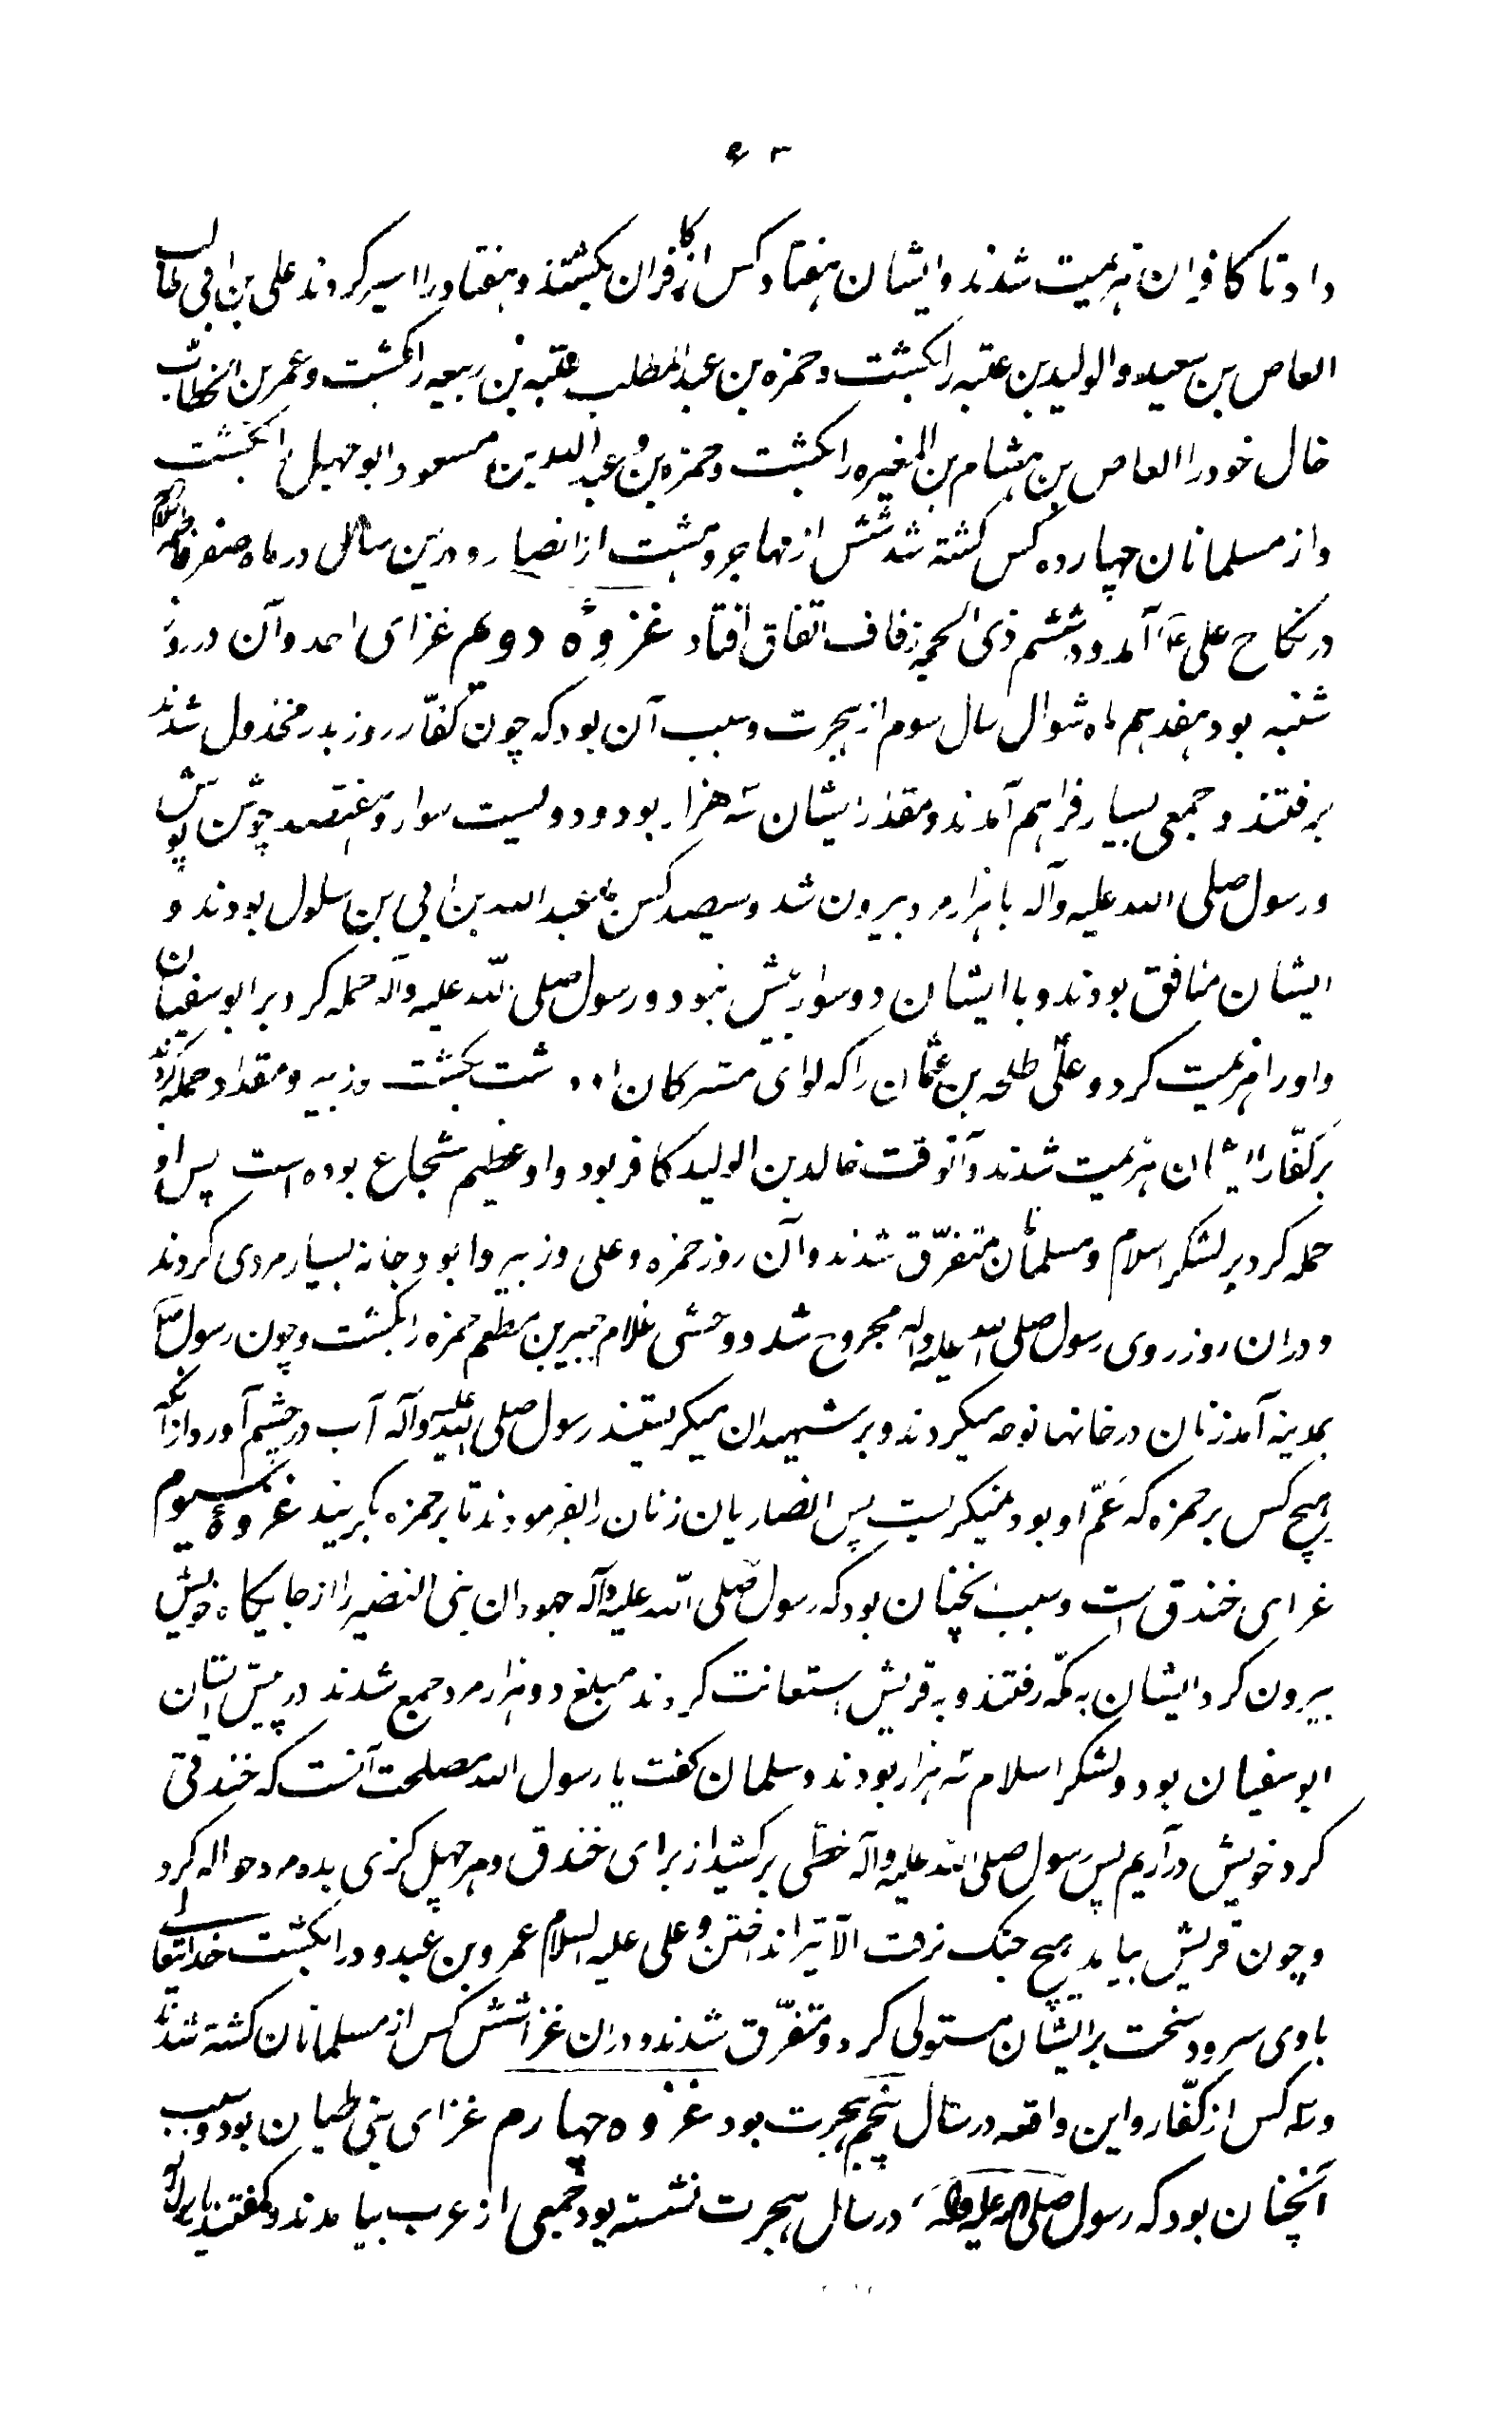 داد تا کافران هزیمت شدند و ایشان هفتاد کس از کافران بکشتند و هفتاد را اسیر کردند علی بن ابی طالب
العاص بن سعید و الولید بن عتبه را بکشت و حمزه بن عبد المطلب عتبه بن ربیعه را بکشت و عمر بن الخطاب
خال خود را العاص بن هشام بن المغیره را بکشت و حمزه بن و عبد الله بن مسعود ابو جهل را بکشت
و از مسلمانان چهارده کس کشته شد شش از مهاجر و هشت از انصار و درین سال در ماه صفر فاطمه
در نکاح علی ع آمد و در ششم ذی الحجه زفاف اتفاق افتاد غزوه دوم غزای احد و آن در روز
شنبه بود هفدهم ماه شوال سال سوم از هجرت و سبب آن بود که چون کفّار روز بدر مخذول شدند
برفتند و جمعی بسیار فراهم آمدند و مقدار ایشان سه هزار بود و دویست سوار و هفتصد جوشن پوش
و رسول صلی الله علیه و آله با هزار مرد بیرون شد و سیصد کس با عبد الله بن ابی بن سلول بودند و
ایشان منافق بودند و با ایشان دو سوار بیش نبود و رسول صلی الله علیه و آله حمله کرد بر ابو سفیان
و او را هزیمت کرد و علی طلحه بن عثمان را که لوای مشرکان داشت بکشت و زبیر و مقداد حمله کردند
بر کفّار ایشان هزیمت شدند و آنوقت خالد بن الولید کافر بود و او عظیم شجاع بوده است پس او
حمله کرد بر لشکر اسلام و مسلمانان متفرّق شدند و آن روز حمزه و علی و زبیر و ابو دجانه بسیار مردی کردند
و در ان روز روی رسول صلی الله علیه و اله مجروح شد و وحشی غلام جبیر بن مطعم حمزه را بکشت و چون رسول ص
بمدینه آمد زنان در خانها نوحه میکردند و بر شهیدان میکریستند رسول صلی الله علیه و آله آب در چشم آورد از آنکه
هیچ کس بر حمزه که عمّ او بود نمیکریست پس انصاریان زنان را بفرمودند تا بر حمزه بکریند غزوهٔ سیوم
غزای خندق است و سبب آنچنان بود که رسول صلی الله علیه و آله جهودان بنی النضیر را از جایکاه خویش
بیرون کرد ایشان به مکّه رفتند و به قریش استعانت کردند مبلغ دو هزار مرد جمع شدند در پیش ایشان
ابو سفیان بود و لشکر اسلام سه هزار بودند و سلمان کفت یا رسول الله مصلحت آنست که خندقی
کرد خویش در آریم پس رسول صلی الله علیه و آله خطّی برکشید از برای خندق و هر چهل کزی بده مرد حواله کرد
و چون قریش بیامد هیچ جنک نرفت الّا تیر انداختن و علی علیه السلام عمرو بن عبدود را بکشت خدایتعالی
بادی سرد و سخت بر ایشان مستولی کرد و متفرّق شدند و در ان غزا شش کس از مسلمانان کشته شدند
و سه کس از کفّار و این واقعه در سال پنجم هجرت بود غزوه چهارم غزای بنی لحیان بود و سبب
آنچنان بود که رسول صلی الله علیه و آله در سال هجرت نشسته بود جمعی از عرب بیامدند و کفتند یا رسول الله